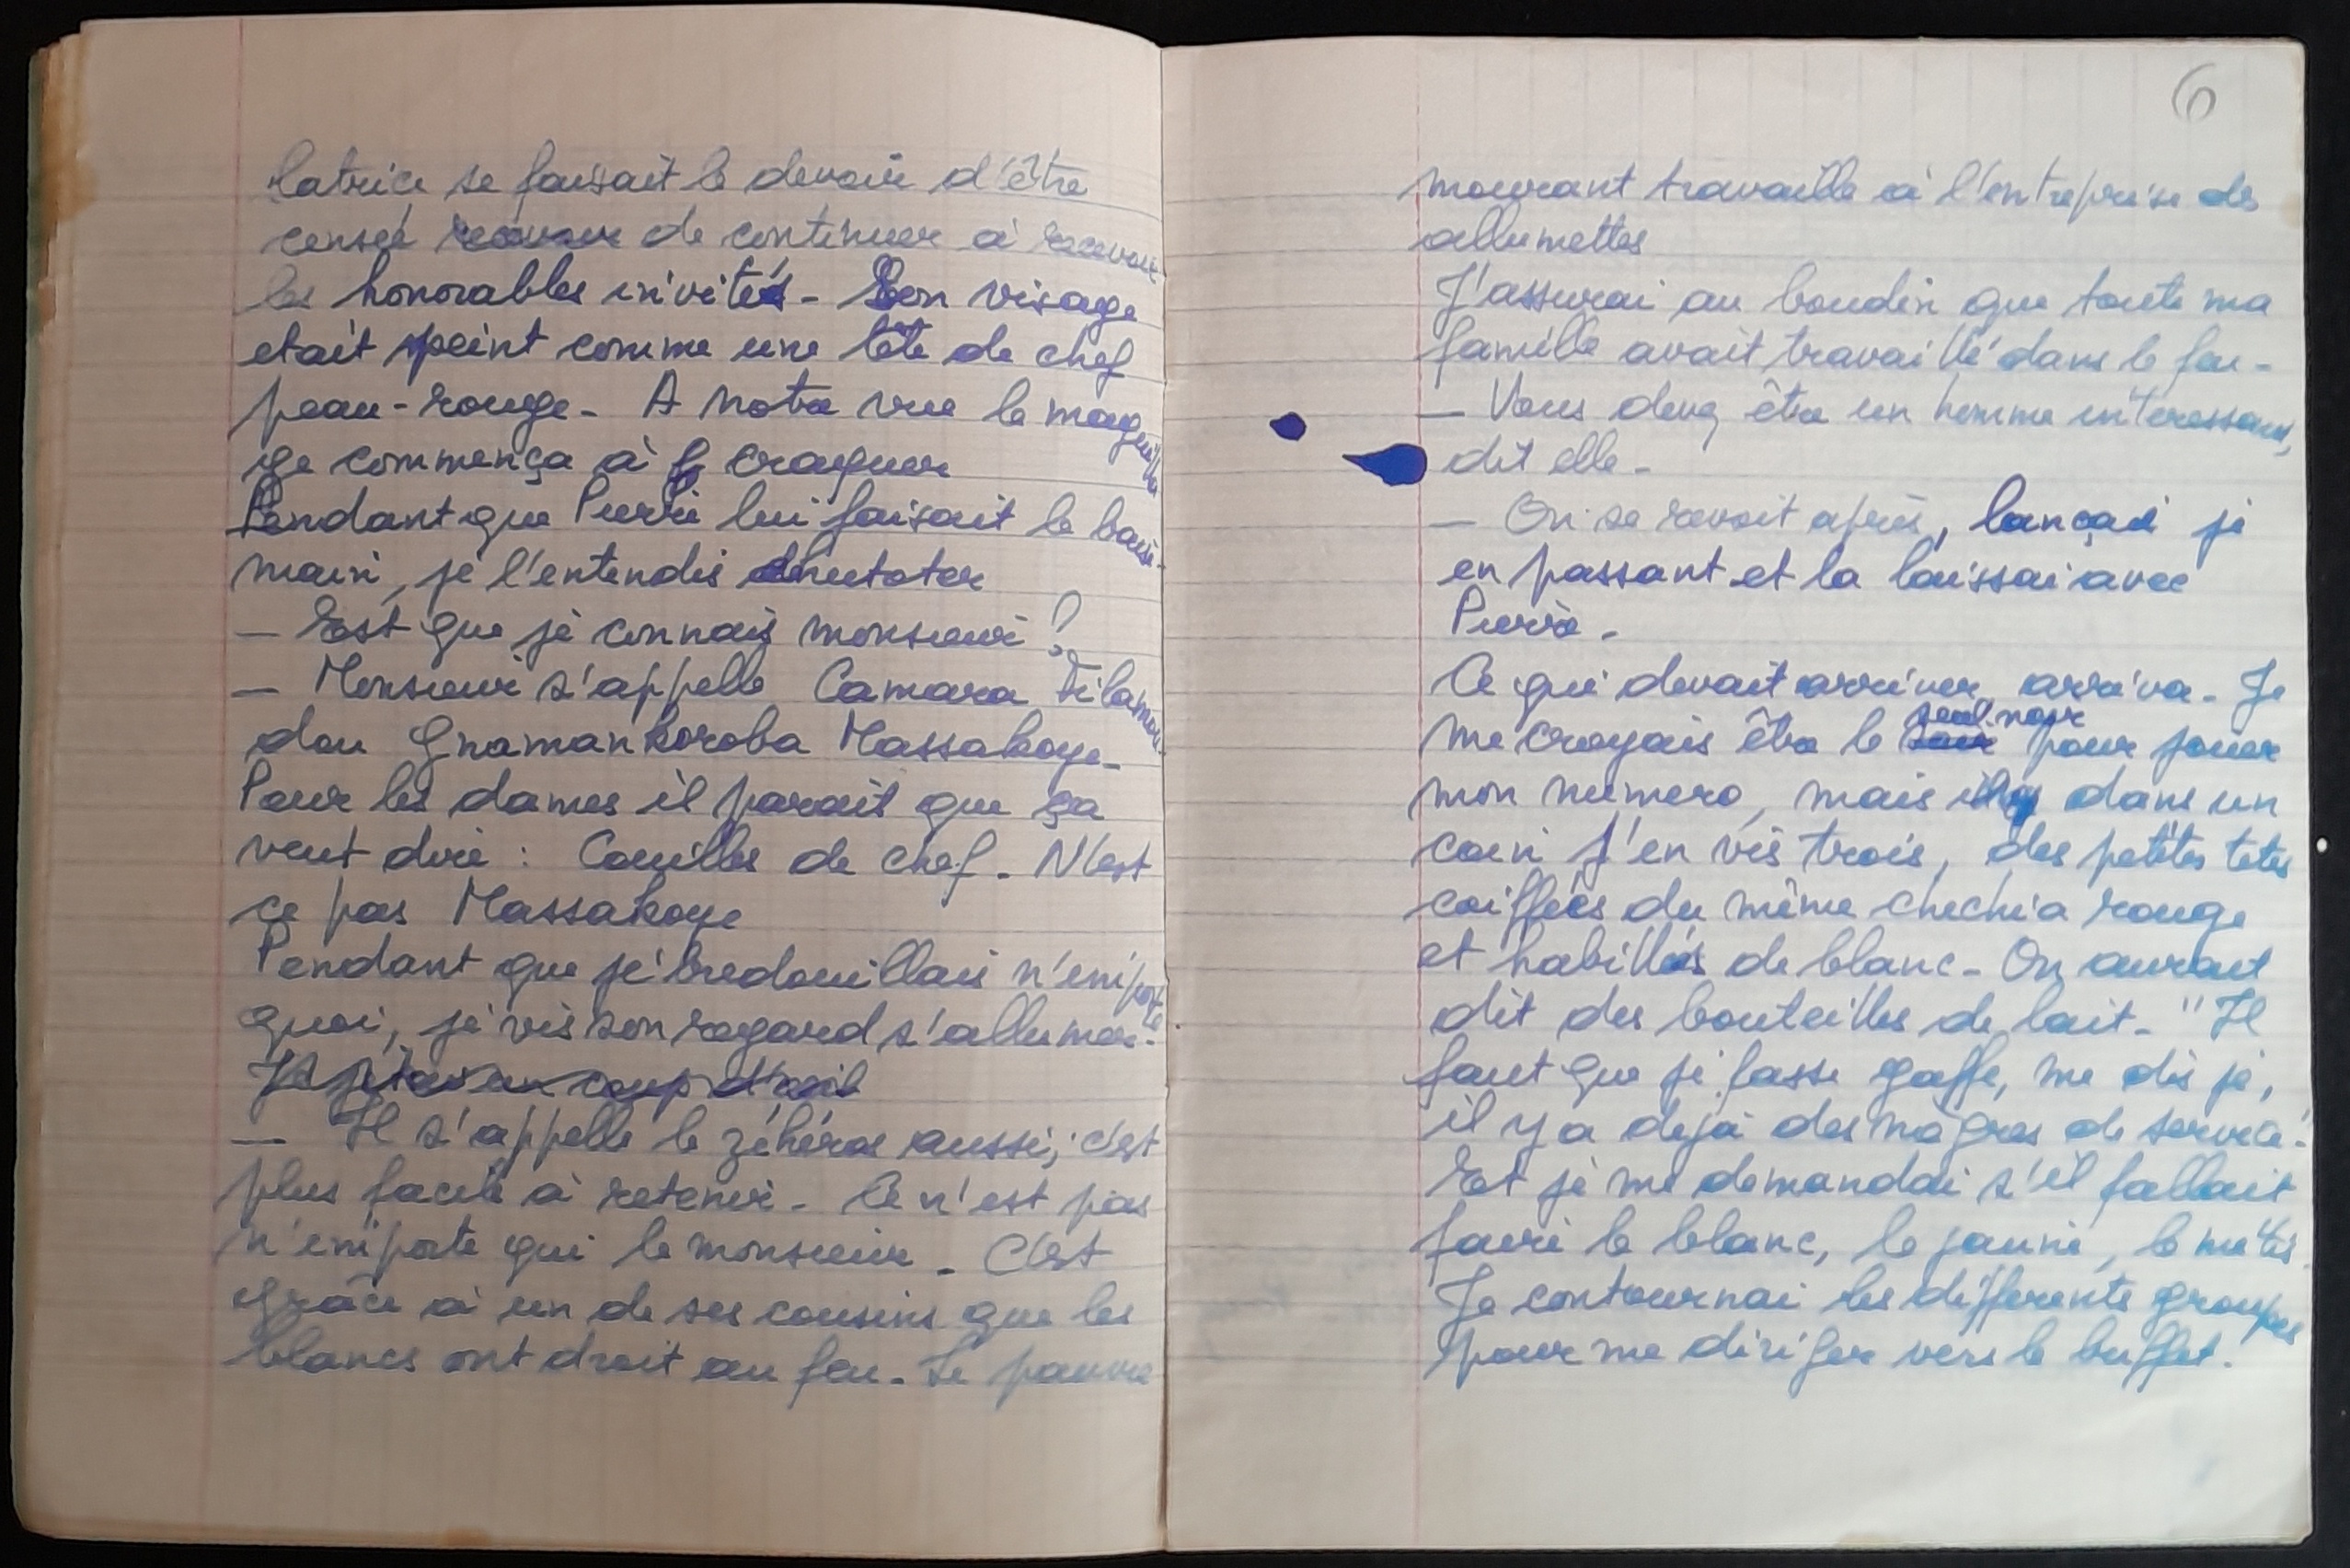 latrice se faisait le devoir d'être
censée recevoir de continuer à recevoir
les honorables invités - Son visage
etait peint comme une tête de chef
peau-rouge - A notre vue le maquilla
ge commença à craquer
Pendant que Pierre lui faisait le baise-
main, je l'entendis chuchoter
— Est que je connais monsieur ?
— Monsieur s'appelle Camara Filamou-
dou Gnamankoroba Massakoye -
Pour les dames il parait que ça
veut dire : Couilles de chef - N'est
ce pas Massakoye
Pendant que je bredouillais n'importe
quoi, je vis son regard s'allumer -
Je jetai un coup d'oeil
— Il s'appelle le zéhéros aussi, c'est
plus facile à retenir - Ce n'est pas
n'importe qui le monsieur - C'est
grâce à un de ses cousins que les
blancs ont droit au feu - Le pauvre
6
mourant travaille à l'entreprise des
allumettes
J'assurai au boudin que toute ma
famille avait travaillé dans le feu -
— Vous devez être un homme interessant,
dit elle -
— On se revoit après, lançai je
en passant et la laissai avec
Pierre -
Ce qui devait arriver, arriva - Je
me croyais être le seul noir pour jouer
mon numero, mais dans un
coin j'en vis trois, des petites tetes
coiffées du même chechia rouge
et habillés de blanc - On aurait
dit des bouteilles de lait - "Il
faut que je fasse gaffe, me dis je,
il y a dejà des nègres de service -"
Et je me demandai s'il fallait
faire le blanc, le jaune, le metis
Je contournai les differents groupes
pour me diriger vers le buffet.